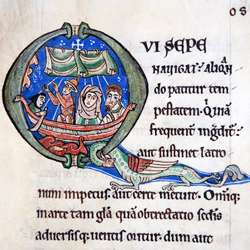 QVI SEPE
navigat: aliqn
do patitur tem
pestatem. Qui
frequent ingdnt:
aut sustinet latro
num impetus. aut certe metuit. Omni
marte tam gla quā obrectatio sedis
adversisque ventis oritur. dum aut